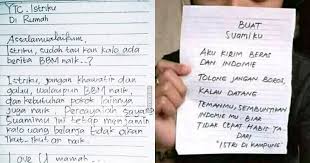 YTC. Istriku
Di Rumah
Assalamualaikum.
Istriku, sudah tau kan kalo ada
berita BBM naik..?
Istriku, jangan khawatir dan
galau, walaupun BBM naik,
dan kebutuhan pokok lainnya
juga naik. Percayalah sayang
Suamimu ini tetap menjamin
kalo uang belanja tidak akan
ikut-ikutan naik.
Love U mamah...
BUAT
SUAMIKU
AKU KIRIM BERAS
DAN INDOMIE
TOLONG JANGAN BOROS,
KALAU DATANG
TEMANMU, SEMBUNYIKAN
INDOMIE MU BIAR
TIDAK CEPAT HABIS YA
DARI
"ISTRI DI KAMPUNG"